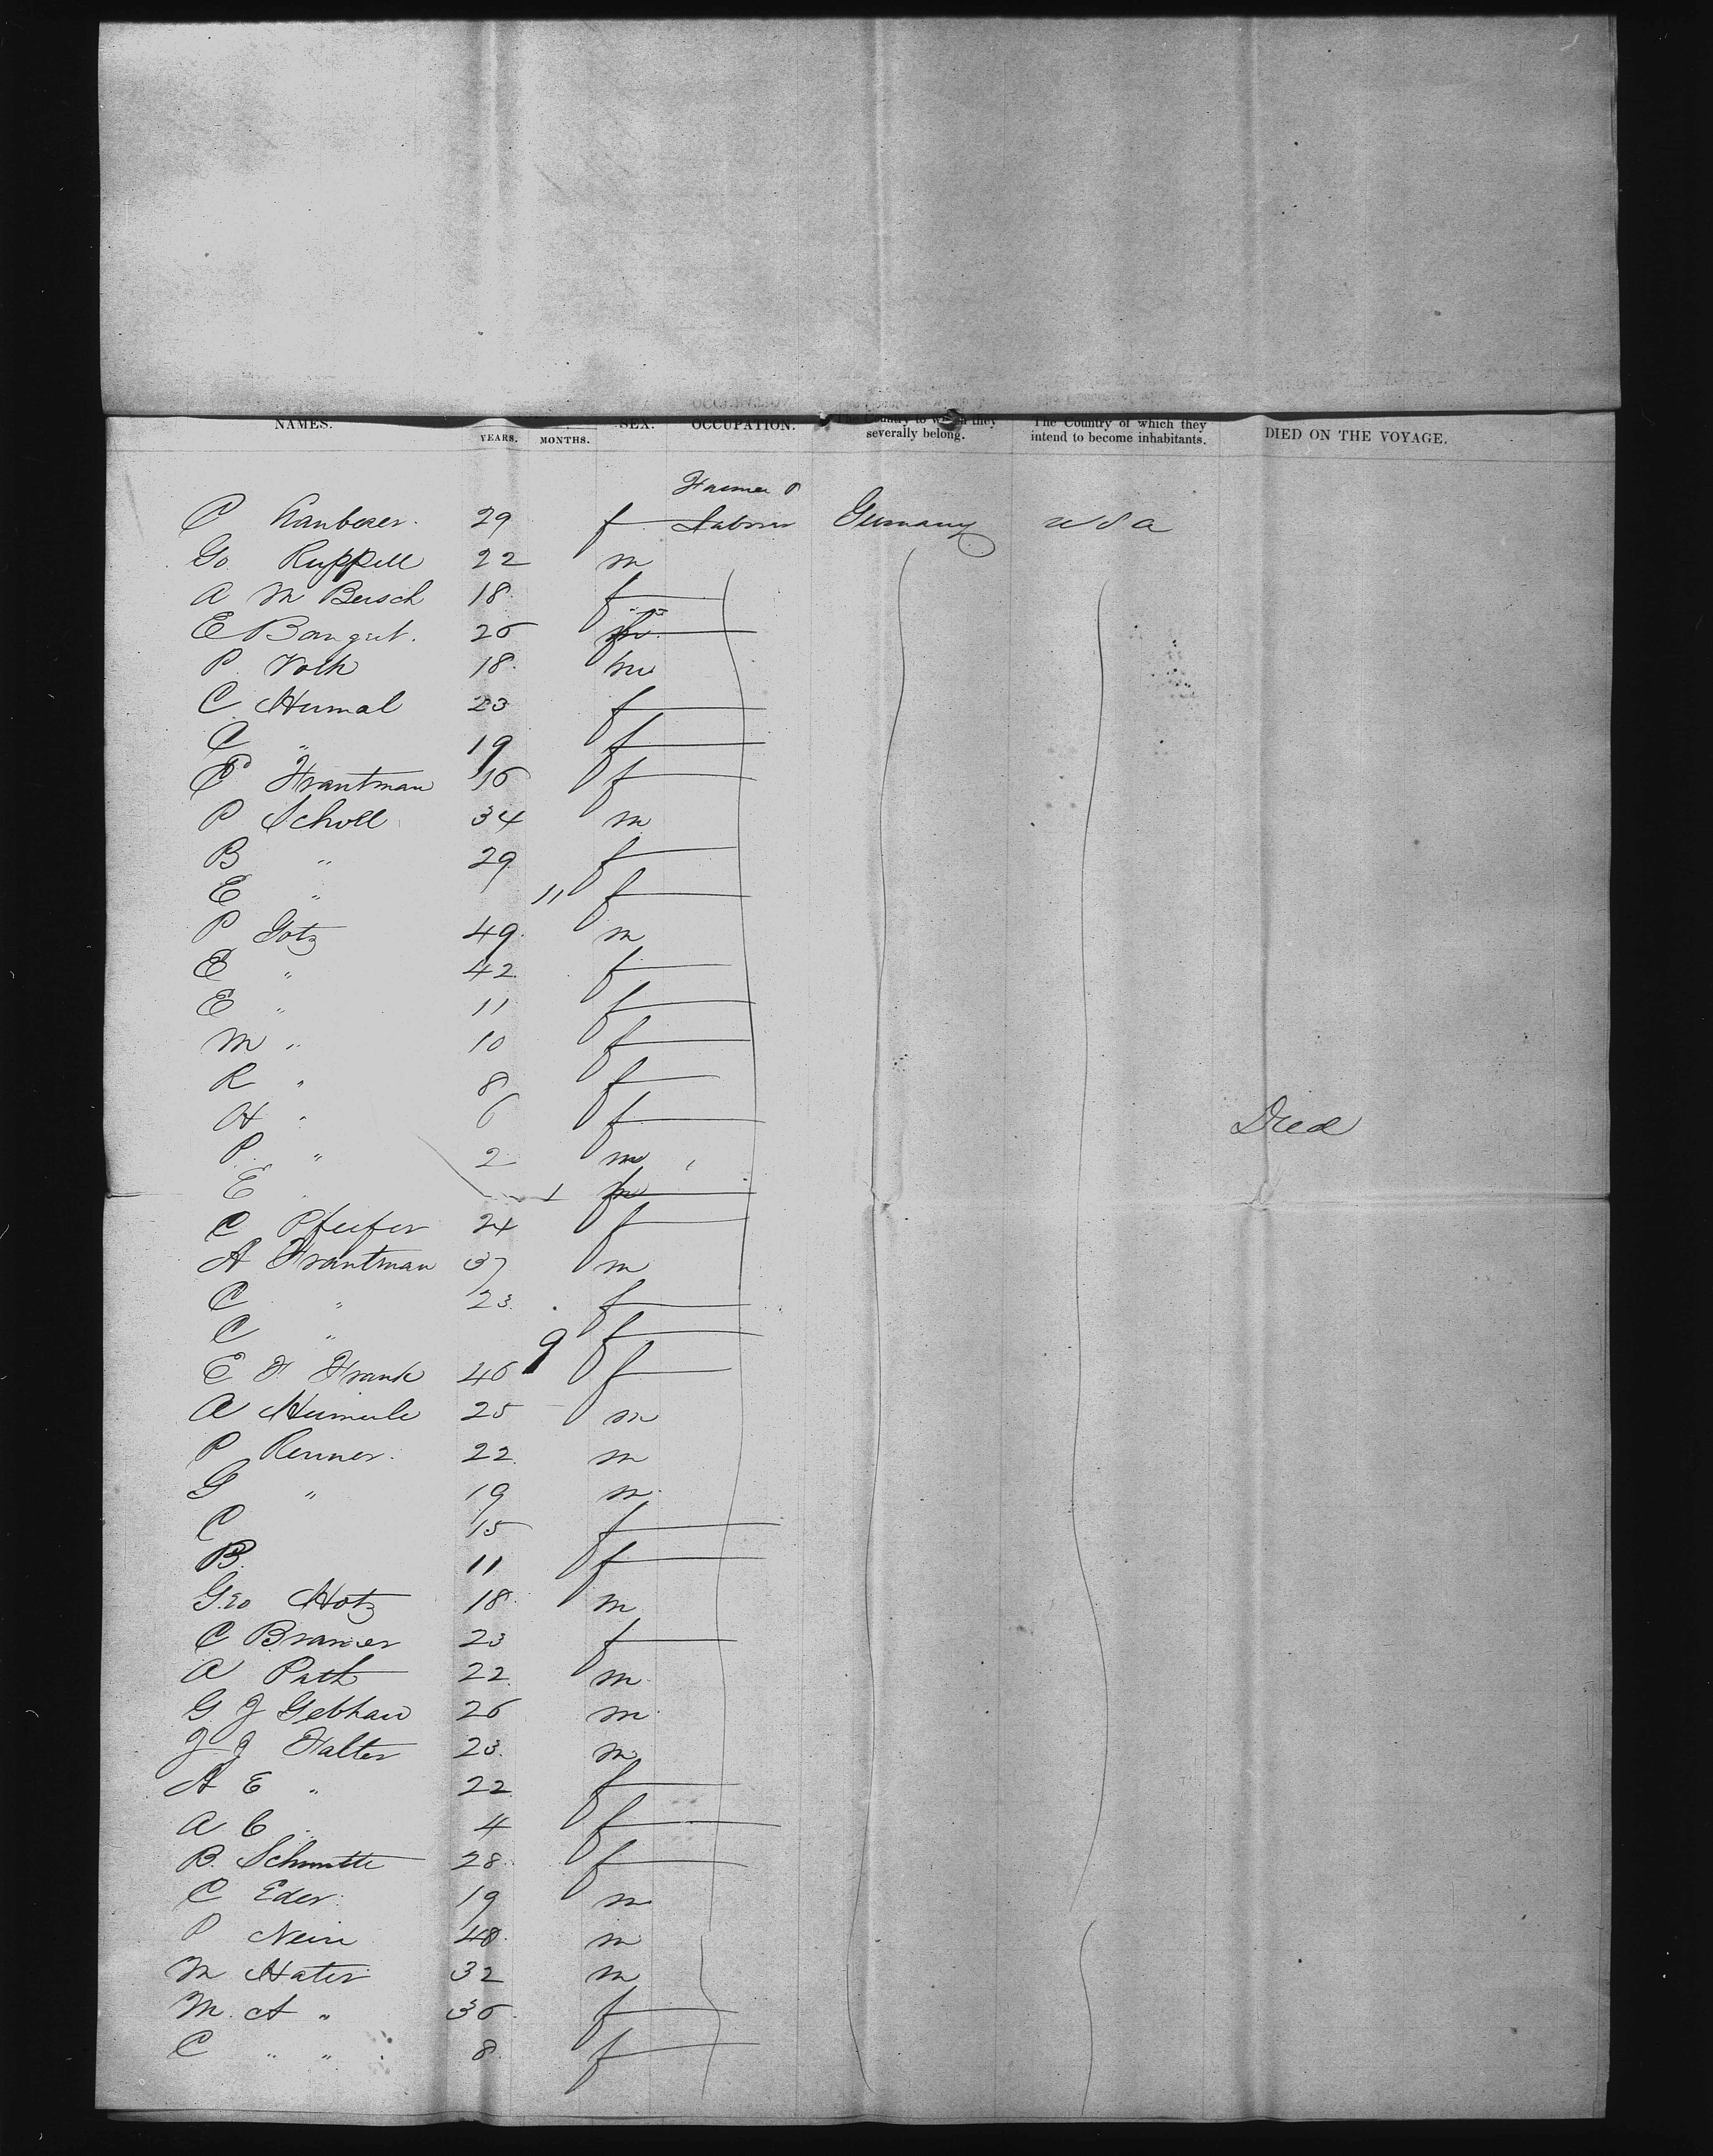 NAMES. YEARS. MONTHS. SEX. OCCUPATION. The Country to which they severally belong. The Country of which they intend to become inhabitants. DIED ON THE VOYAGE.
Farmer &
C 29 f Labour Germany U S A
Go Ruppell 22 m
A M Bersch 18 f
E Bangert. 26
P. Volk 18 m
C Humal 23 f
C " 19 f
P Trautman 16 f
P Scholl 34 m
B " 29 f
E " 11 f
P Gotz 49 m
E " 42 f
E " 11 f
M " 10 f
R " 8 f
H " 6 f Died
P. " 2 m
E 1
C Pfeifer 24 f
A Trautman 37 m
C " 23 f
C " 9 f
E F Frank 46 f
A 25 m
P Renner 22 m
G " 19 m
C 15 f
B. 11 f
Geo Hotz 18 m
C 23 f
A Path 22 m
G J Gebhau 26 m
J J Falter 23 m
A E " 22 f
A C 4 f
B. Schmitte 28 f
C Eder 19 m
P 48 m
M Hater 32 m
M. A " 36 f
C " " 8 f